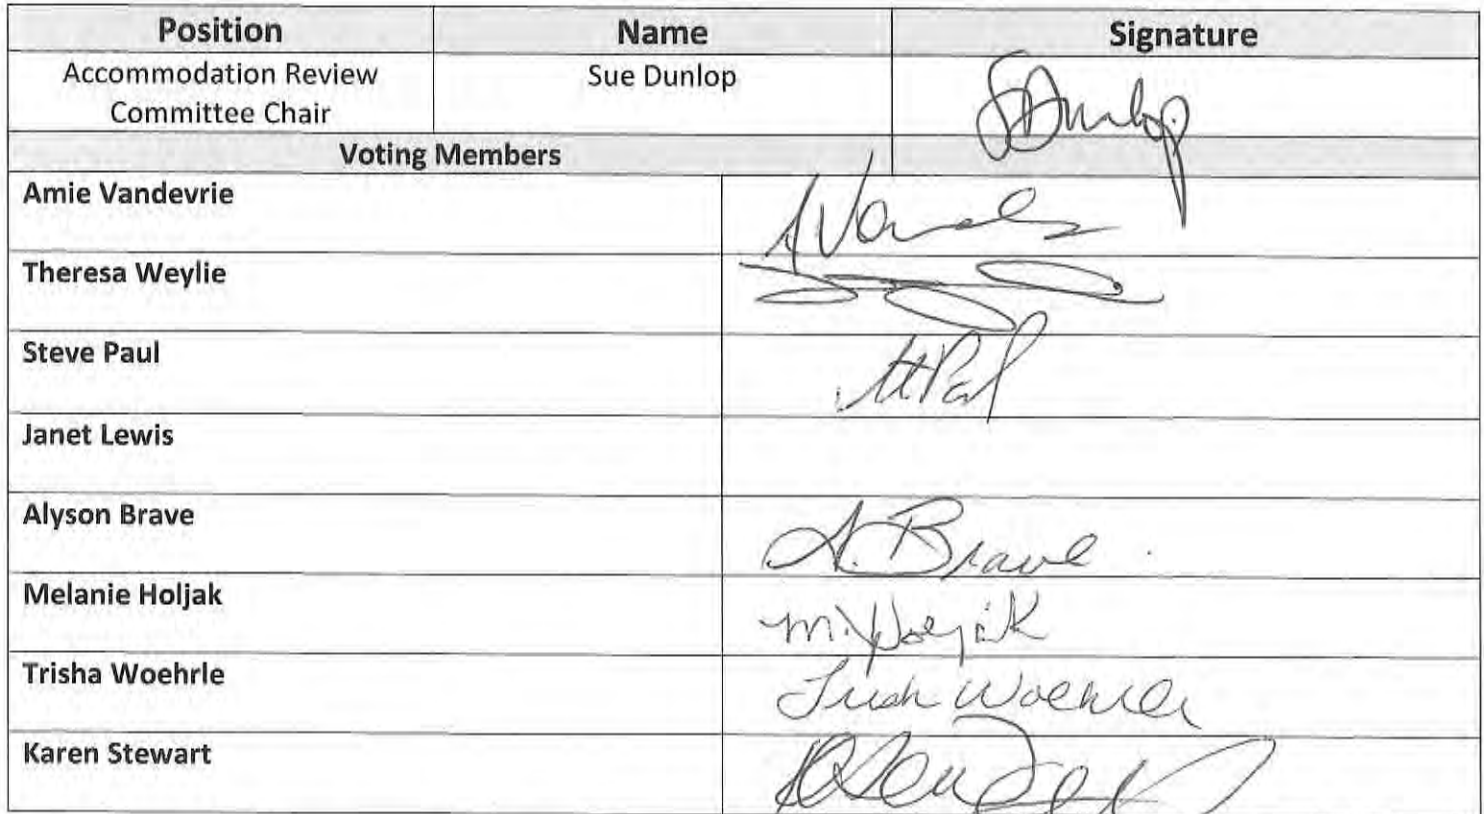 Position Name Signature
Accommodation Review Sue Dunlop
Committee Chair SDunlop
Voting Members
Amie Vandevrie
Theresa Weylie
Steve Paul
Janet Lewis
Alyson Brave A. Brave
Melanie Holjak M. Holjak
Trisha Woehrle Trish Woehrle
Karen Stewart